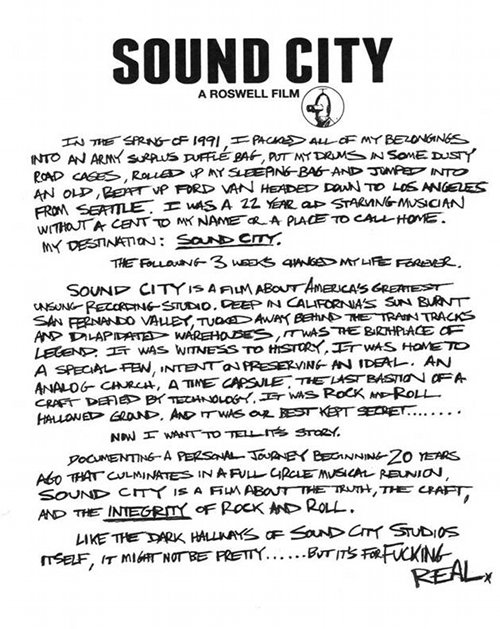 SOUND CITY
A ROSWELL FILM
IN THE SPRING OF 1991, I PACKED ALL OF MY BELONGINGS
INTO AN ARMY SURPLUS DUFFLE BAG, PUT MY DRUMS IN SOME DUSTY
ROAD CASES, ROLLED UP MY SLEEPING BAG AND JUMPED INTO
AN OLD, BEAT UP FORD VAN HEADED DOWN TO LOS ANGELES
FROM SEATTLE. I WAS A 22 YEAR OLD STARVING MUSICIAN
WITHOUT A CENT TO MY NAME OR A PLACE TO CALL HOME.
MY DESTINATION: SOUND CITY.
THE FOLLOWING 3 WEEKS CHANGED MY LIFE FOREVER.
SOUND CITY IS A FILM ABOUT AMERICA'S GREATEST
UNSUNG RECORDING STUDIO. DEEP IN CALIFORNIA'S SUN BURNT
SAN FERNANDO VALLEY, TUCKED AWAY BEHIND THE TRAIN TRACKS
AND DILAPIDATED WAREHOUSES, IT WAS THE BIRTHPLACE OF
LEGEND. IT WAS WITNESS TO HISTORY. IT WAS HOME TO
A SPECIAL FEW, INTENT ON PRESERVING AN IDEAL. AN
ANALOG CHURCH, A TIME CAPSULE. THE LAST BASTION OF A
CRAFT DEFIED BY TECHNOLOGY. IT WAS ROCK AND ROLL
HALLOWED GROUND. AND IT WAS OUR BEST KEPT SECRET.......
NOW I WANT TO TELL ITS STORY.
DOCUMENTING A PERSONAL JOURNEY BEGINNING 20 YEARS
AGO THAT CULMINATES IN A FULL CIRCLE MUSICAL REUNION,
SOUND CITY IS A FILM ABOUT THE TRUTH, THE CRAFT,
AND THE INTEGRITY OF ROCK AND ROLL.
LIKE THE DARK HALLWAYS OF SOUND CITY STUDIOS
ITSELF, IT MIGHT NOT BE PRETTY......BUT IT'S FOR FUCKING
REAL.x